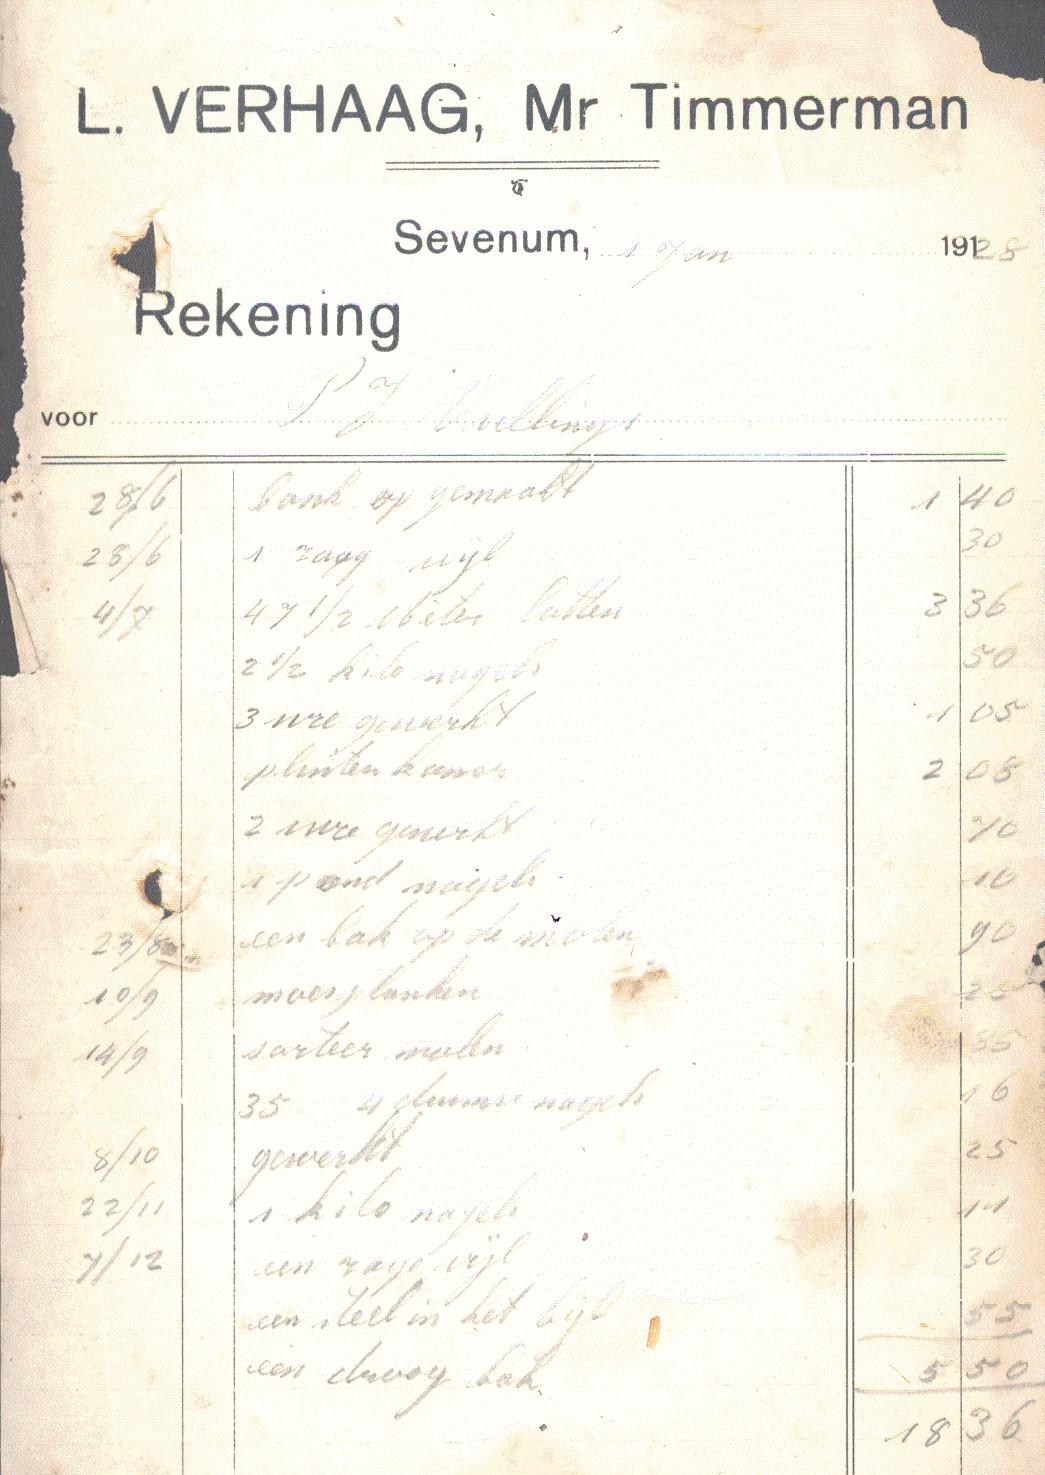 L. VERHAAG, Mr Timmerman
Sevenum, 1 Jan 1928
Rekening
voor P J Vullings
28/6 bank op gemaakt 1 40
28/6 1 zaag vijl 30
4/7 47 1/2 Meter latten 3 36
2 1/2 kilo nagels 50
3 ure gewerkt 1 05
plinten kamer 2 05
2 ure gewerkt 70
1 pond nagels 10
23/8 een bak op de molen 90
10/9 moesplanken 25
14/9 sorteer molen 85
35 4 duimse nagels 16
8/10 gewerkt 25
22/11 1 kilo nagels 11
7/12 een zage vijl 30
een steel in het bijl 55
een droog bak 5 50
18 36